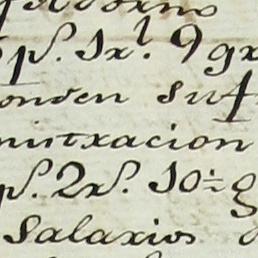 pˢ. 1rˡ. 9 gr
onden suf
nistracion
pˢ. 2rˢ. 10÷g
Salarios